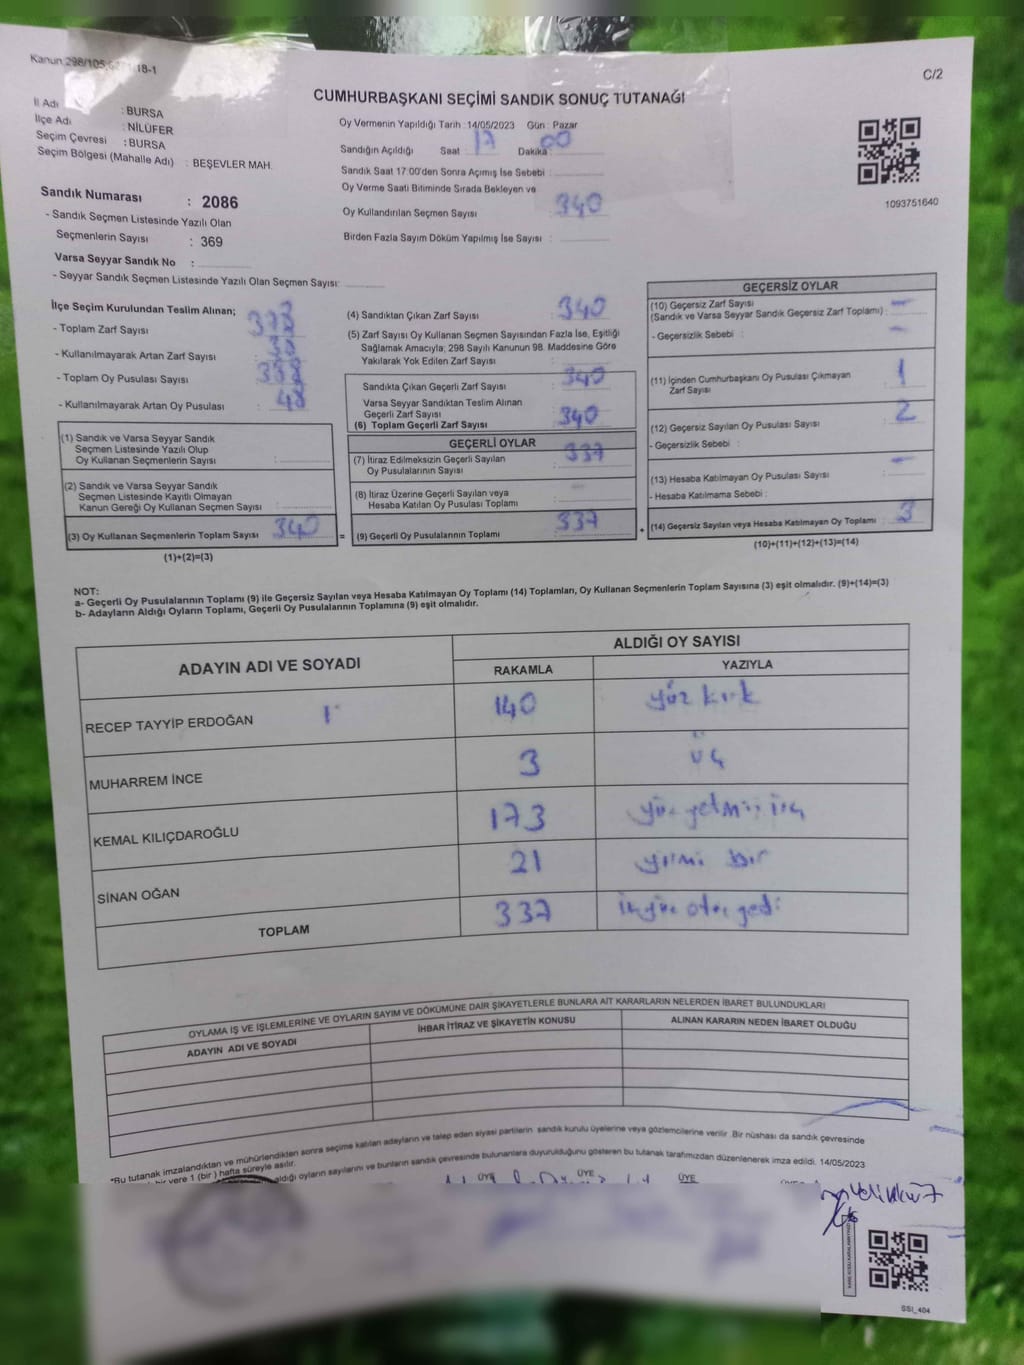 Kanun 298/105, 18-1
C/2
CUMHURBAŞKANI SEÇİMİ SANDIK SONUÇ TUTANAĞI
İl Adı : BURSA
İlçe Adı : NİLÜFER
Seçim Çevresi : BURSA
Seçim Bölgesi (Mahalle Adı) : BEŞEVLER MAH.
Oy Vermenin Yapıldığı Tarih :14/05/2023 Gün : Pazar
Sandığın Açıldığı Saat 17 Dakika 00
Sandık Saat 17:00'den Sonra Açımış İse Sebebi :
Oy Verme Saati Bitiminde Sırada Bekleyen ve
Oy Kullandırılan Seçmen Sayısı 340
Birden Fazla Sayım Döküm Yapılmış İse Sayısı :
1093751640
Sandık Numarası : 2086
- Sandık Seçmen Listesinde Yazılı Olan
Seçmenlerin Sayısı : 369
Varsa Seyyar Sandık No :
- Seyyar Sandık Seçmen Listesinde Yazılı Olan Seçmen Sayısı:
İlçe Seçim Kurulundan Teslim Alınan;
- Toplam Zarf Sayısı
- Kullanılmayarak Artan Zarf Sayısı
- Toplam Oy Pusulası Sayısı :
- Kullanılmayarak Artan Oy Pusulası :
(1) Sandık ve Varsa Seyyar Sandık
Seçmen Listesinde Yazılı Olup
Oy Kullanan Seçmenlerin Sayısı :
(2) Sandık ve Varsa Seyyar Sandık
Seçmen Listesinde Kayıtlı Olmayan
Kanun Gereği Oy Kullanan Seçmen Sayısı :
(3) Oy Kullanan Seçmenlerin Toplam Sayısı 340
(1)+(2)=(3)
=
(4) Sandıktan Çıkan Zarf Sayısı 340
(5) Zarf Sayısı Oy Kullanan Seçmen Sayısından Fazla İse, Eşitliği
Sağlamak Amacıyla; 298 Sayılı Kanunun 98. Maddesine Göre
Yakılarak Yok Edilen Zarf Sayısı
Sandıkta Çıkan Geçerli Zarf Sayısı 340
Varsa Seyyar Sandıktan Teslim Alınan
Geçerli Zarf Sayısı
(6) Toplam Geçerli Zarf Sayısı 340
GEÇERLİ OYLAR
(7) İtiraz Edilmeksizin Geçerli Sayılan
Oy Pusulalarının Sayısı 337
(8) İtiraz Üzerine Geçerli Sayılan veya
Hesaba Katılan Oy Pusulası Toplamı -
(9) Geçerli Oy Pusulalarının Toplamı 337
+
GEÇERSİZ OYLAR
(10) Geçersiz Zarf Sayısı
(Sandık ve Varsa Seyyar Sandık Geçersiz Zarf Toplamı) : -
- Geçersizlik Sebebi : -
(11) İçinden Cumhurbaşkanı Oy Pusulası Çıkmayan
Zarf Sayısı 1
(12) Geçersiz Sayılan Oy Pusulası Sayısı : 2
- Geçersizlik Sebebi :
(13) Hesaba Katılmayan Oy Pusulası Sayısı -
- Hesaba Katılmama Sebebi :
(14) Geçersiz Sayılan veya Hesaba Katılmayan Oy Toplamı 3
(10)+(11)+(12)+(13)=(14)
NOT:
a- Geçerli Oy Pusulalarının Toplamı (9) ile Geçersiz Sayılan veya Hesaba Katılmayan Oy Toplamı (14) Toplamları, Oy Kullanan Seçmenlerin Toplam Sayısına (3) eşit olmalıdır. (9)+(14)=(3)
b- Adayların Aldığı Oyların Toplamı, Geçerli Oy Pusulalarının Toplamına (9) eşit olmalıdır.
ADAYIN ADI VE SOYADI ALDIĞI OY SAYISI
RAKAMLA YAZIYLA
RECEP TAYYİP ERDOĞAN 140 yüz kırk
MUHARREM İNCE 3 üç
KEMAL KILIÇDAROĞLU 173 yüz yetmiş üç
SİNAN OĞAN 21 yirmi bir
TOPLAM 337
OYLAMA İŞ VE İŞLEMLERİNE VE OYLARIN SAYIM VE DÖKÜMÜNE DAİR ŞİKAYETLERLE BUNLARA AİT KARARLARIN NELERDEN İBARET BULUNDUKLARI
ADAYIN ADI VE SOYADI İHBAR İTİRAZ VE ŞİKAYETİN KONUSU ALINAN KARARIN NEDEN İBARET OLDUĞU
*Bu tutanak imzalandıktan ve mühürlendikten sonra seçime katılan adayların ve talep eden siyasi partilerin sandık kurulu üyelerine veya gözlemcilerine verilir. Bir nüshası da sandık çevresinde
bir yere 1 (bir) hafta süreyle asılır.
aldığı oyların sayılarını ve bunların sandık çevresinde bulunanlara duyurulduğunu gösteren bu tutanak tarafımızdan düzenlenerek imza edildi. 14/05/2023
ÜYE ÜYE ÜYE
SSI_404